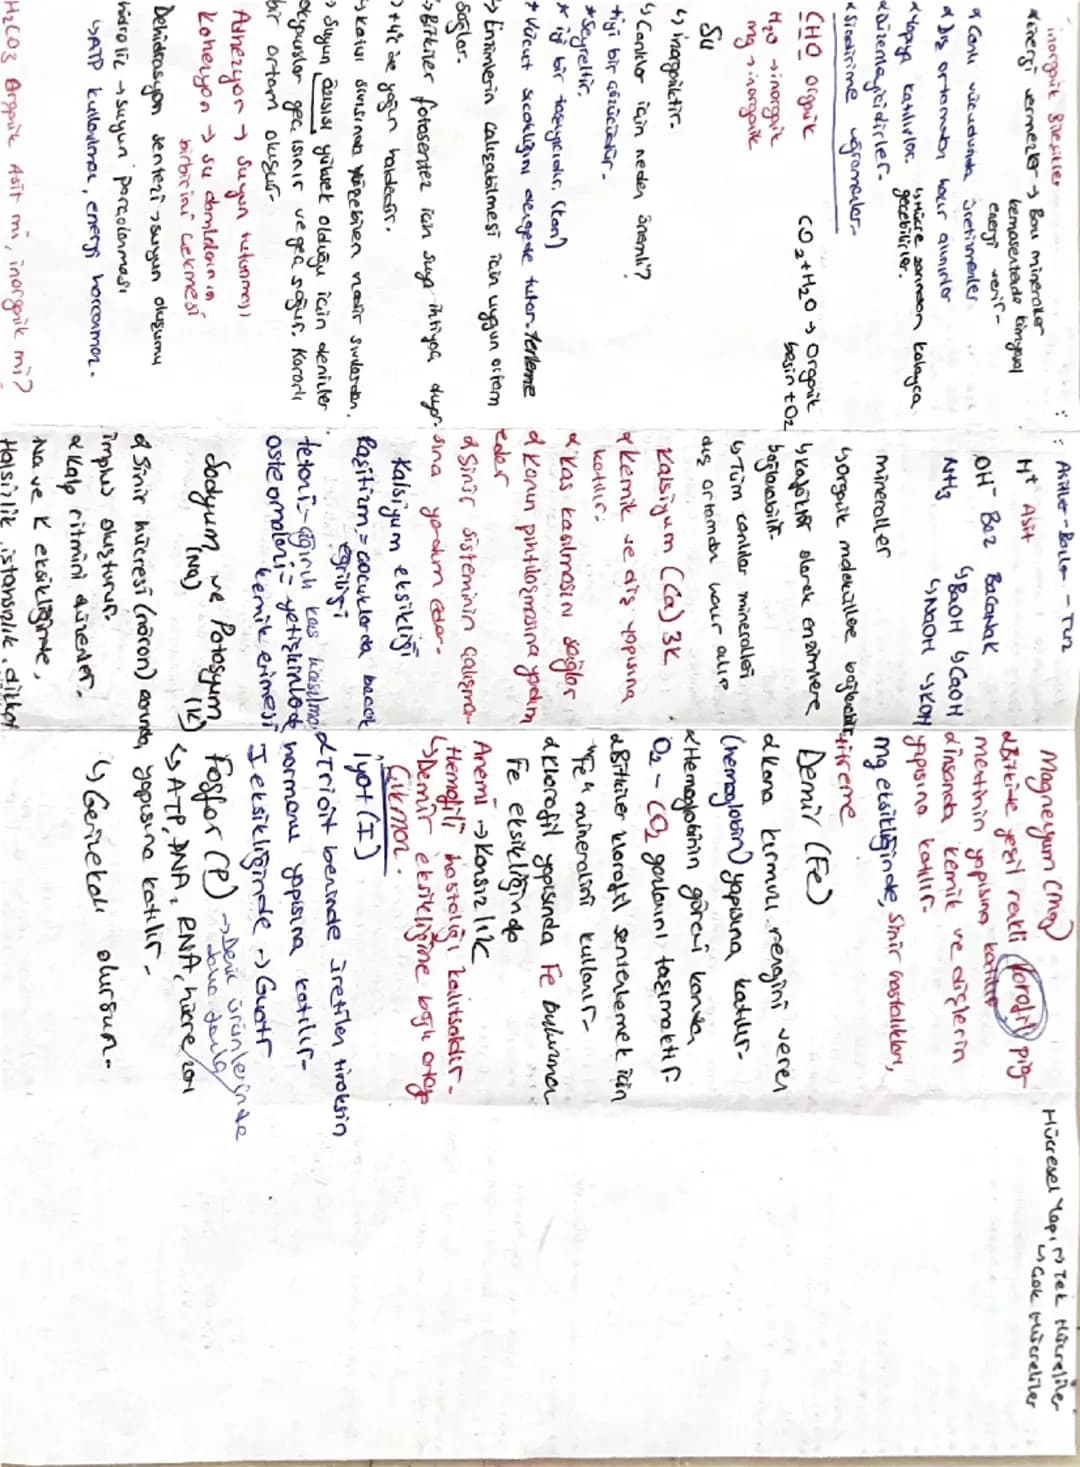 inorganik Bileşikler
* Enerji vermezler → Bazı mineraller
kemosentezde kimyasal
enerji verir.
* Canlı vücudunda üretilmezler
* Dış ortamdan hazır alınırlar
* Yapıya katılırlar. ↳ Hücre zarından kolayca
geçebilirler.
* Düzenleyicidirler.
* Sindirime uğramazlar.
CHO organik
H₂O → inorganik
mg → inorganik
CO₂ + H₂O → Organik
besin + O₂
Su
↳ inorganiktir.
↳ Canlılar için neden önemli?
* iyi bir çözücüdür.
* Seyreltir.
* iyi bir taşıyıcıdır. (kan)
* Vücut sıcaklığını dengede tutar. terleme
↳ Enzimlerin çalışabilmesi için uygun ortam
sağlar.
↳ Bitkiler fotosentez için suya ihtiyaç duyar.
yoğun haldedir.
↳ Katısı sıvısında yüzebilen nadir sıvılardan.
↳ Suyun özısısı yüksek olduğu için denizler
okyanuslar geç ısınır ve geç soğur. Kararlı
bir ortam oluşur.
Adhezyon → suyun tutunması
Kohezyon → su damlalarının
birbirini çekmesi
Dehidrasyon sentezi → suyun oluşumu
hidroliz → suyun parçalanması
↳ ATP kullanılmaz, enerji harcanmaz.
H₂CO₃ Organik Asit mi, inorganik mi?
Asitler - Bazlar - Tuz
H⁺ Asit
OH⁻ Baz BaCaNaK
NH₃ ↳ BaOH ↳ CaOH
↳ NaOH ↳ KOH
mineraller
↳ organik moleküllere bağlanabilir
↳ kofaktör olarak enzimlere
bağlanabilir.
↳ Tüm canlılar mineralleri
dış ortamdan hazır alır.
Kalsiyum (Ca) 3K
* kemik ve diş yapısına
katılır.
* Kas kasılmasını sağlar
* Kanın pıhtılaşmasına yardım
eder
* Sinir sisteminin çalışma-
sına yardım eder.
Kalsiyum eksikliği
Raşitizm = çocuklarda bacak
eğriliği
tetoni = ağrılı kas kasılması
osteomalazi = yetişkinlerde
kemik erimesi
Sodyum ve Potasyum
(Na) (K)
* Sinir hücresi (nöron) zarında
impuls oluşturur.
* Kalp ritmini düzenler.
Na ve K eksikliğinde,
Halsizlik, istahsızlık, dikkat
Magnezyum (mg)
* Bitkiye yeşil renkli klorofil pig-
mentinin yapısına katılır.
* insanda kemik ve dişlerin
yapısına katılır.
mg eksikliğinde, Sinir hastalıkları,
titreme
Demir (Fe)
* kana kırmızı rengini veren
(hemoglobin) yapısına katılır.
* Hemoglobinin görevi kanda
O₂ - CO₂ gazlarını taşımaktır.
* Bitkiler klorofil sentezlemek için
"Fe" mineralini kullanır.
* klorofil yapısında Fe bulunmaz
Fe eksikliğinde
Anemi → Kansızlık
Hemofili hastalığı kalıtsaldır.
↳ Demir eksikliğine bağlı ortaya
çıkmaz.
iyot (I)
* Triot bezinde üretilen tiroksin
hormonu yapısına katılır.
I eksikliğinde → Guatr
Fosfor (P) → Deniz ürünlerinde
daha fazla
↳ ATP, DNA, RNA, hücre zarı
yapısına katılır.
Hücresel Yapı → Tek Hücreliler
↳ Çok Hücreliler